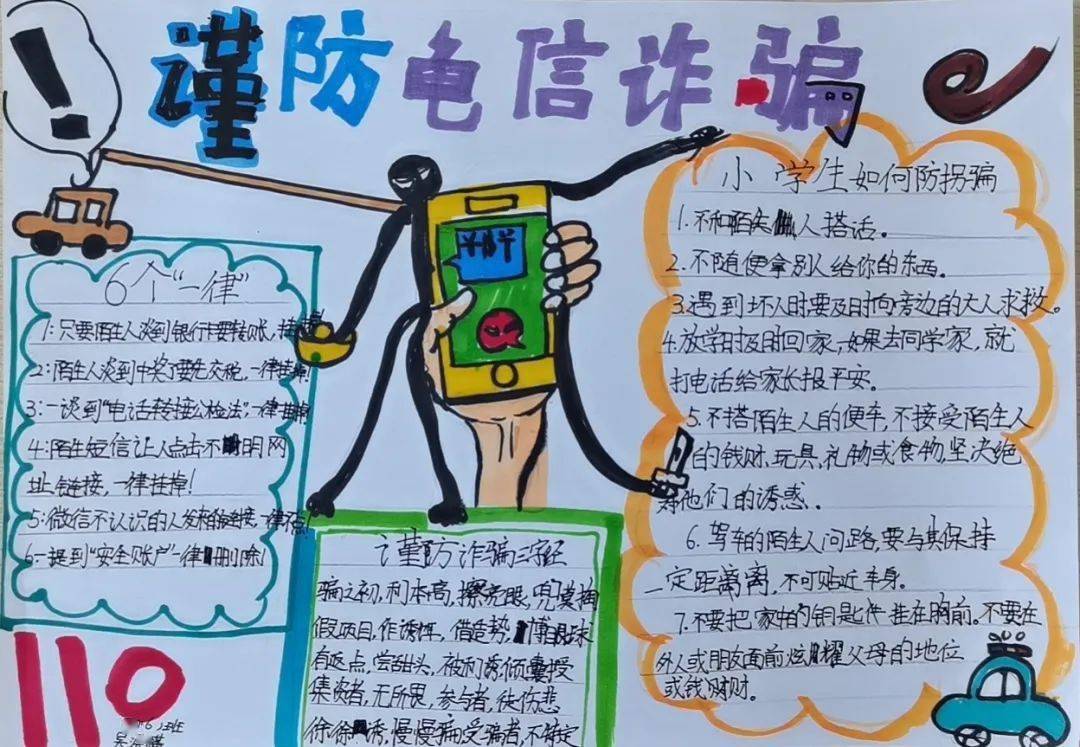 谨防电信诈骗
6个"一律"
1:只要陌生人谈到银行卡要转账,挂
2:陌生人谈到中奖了要先交税,一律挂掉!
3:一谈到"电话转接公检法",一律挂掉
4:陌生短信让人点击不明网
址链接,一律挂掉!
5:微信不认识的人发来的链接,一律不点!
6一提到"安全账户"一律删除!
110
谨防诈骗三字经
骗之初,利本高,擦亮眼,
假项目,作诱饵,借造势,博眼球
有返点,尝甜头,被利诱倾囊授
集资者,无所畏,参与者,徒伤悲
徐徐诱,慢慢骗,受骗者,不锌定
小学生如何防拐骗
1.不和陌失人搭话。
2.不随便拿别人给你的东西。
3.遇到坏人时要及时向旁边的大人求救。
4.放学时及时回家,如果去同学家,就
打电话给家长报平安。
5.不搭陌生人的便车,不接受陌生人
的钱财、玩具,礼物或食物,坚决绝
他们的诱惑.
6.驾车的陌生人问路,要与其保持
一定距离,不可贴近车身。
7.不要把家中的钥匙件挂在胸前。不要在
外人或朋友面前炫耀父母的地位
或钱财。